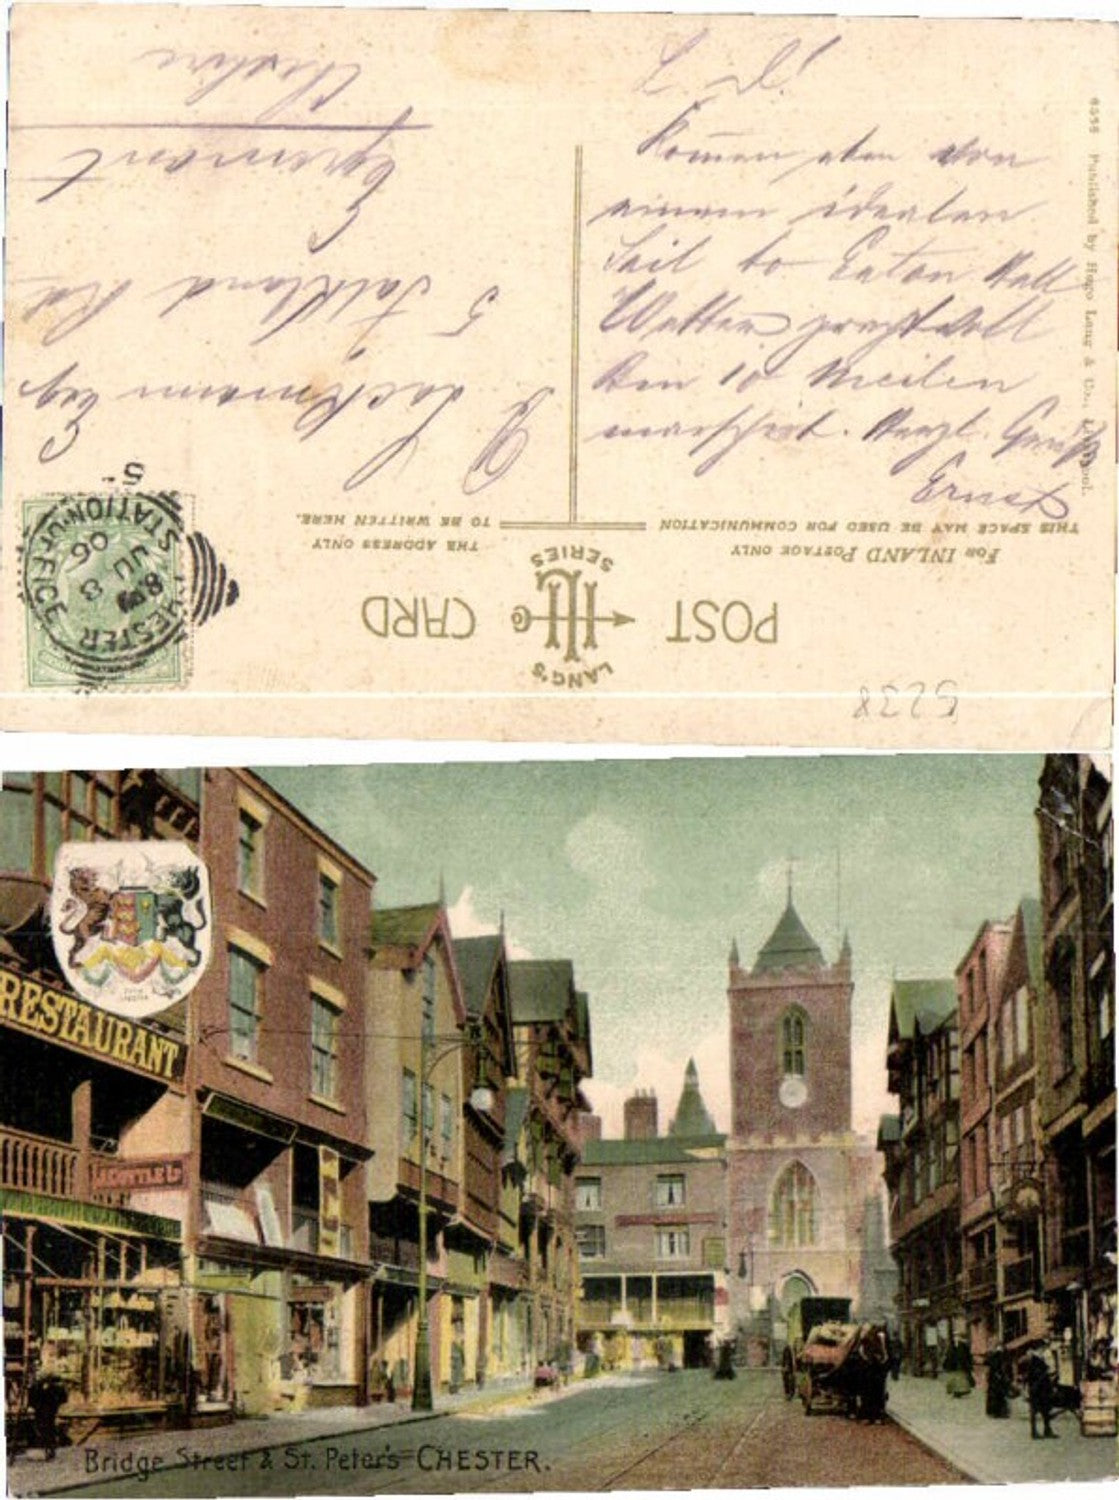 L. D!
Kommen eben von
einem idealen
Sail to Eaton Hall
Wetter prachtvoll
10 Meilen
marschirt. Herzl. Gruß
Ernst
Lachmann Esq
5 Falkland Rd
Egremont
Cheshire
POST CARD
LANG'S
SERIES
FOR INLAND POSTAGE ONLY
THIS SPACE MAY BE USED FOR COMMUNICATION
THE ADDRESS ONLY
TO BE WRITTEN HERE.
CHESTER
STATION OFFICE
JU 8
06
Published by Hugo Lang & Co., Liverpool.
5238
RESTAURANT
Bridge Street & St. Peter's CHESTER.